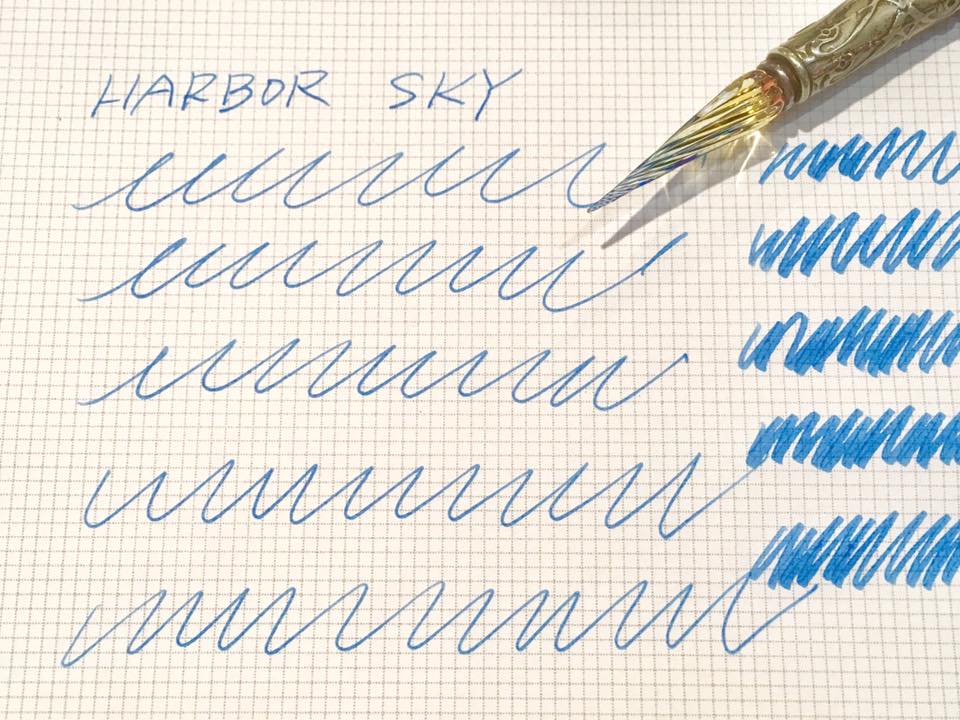 HARBOR SKY